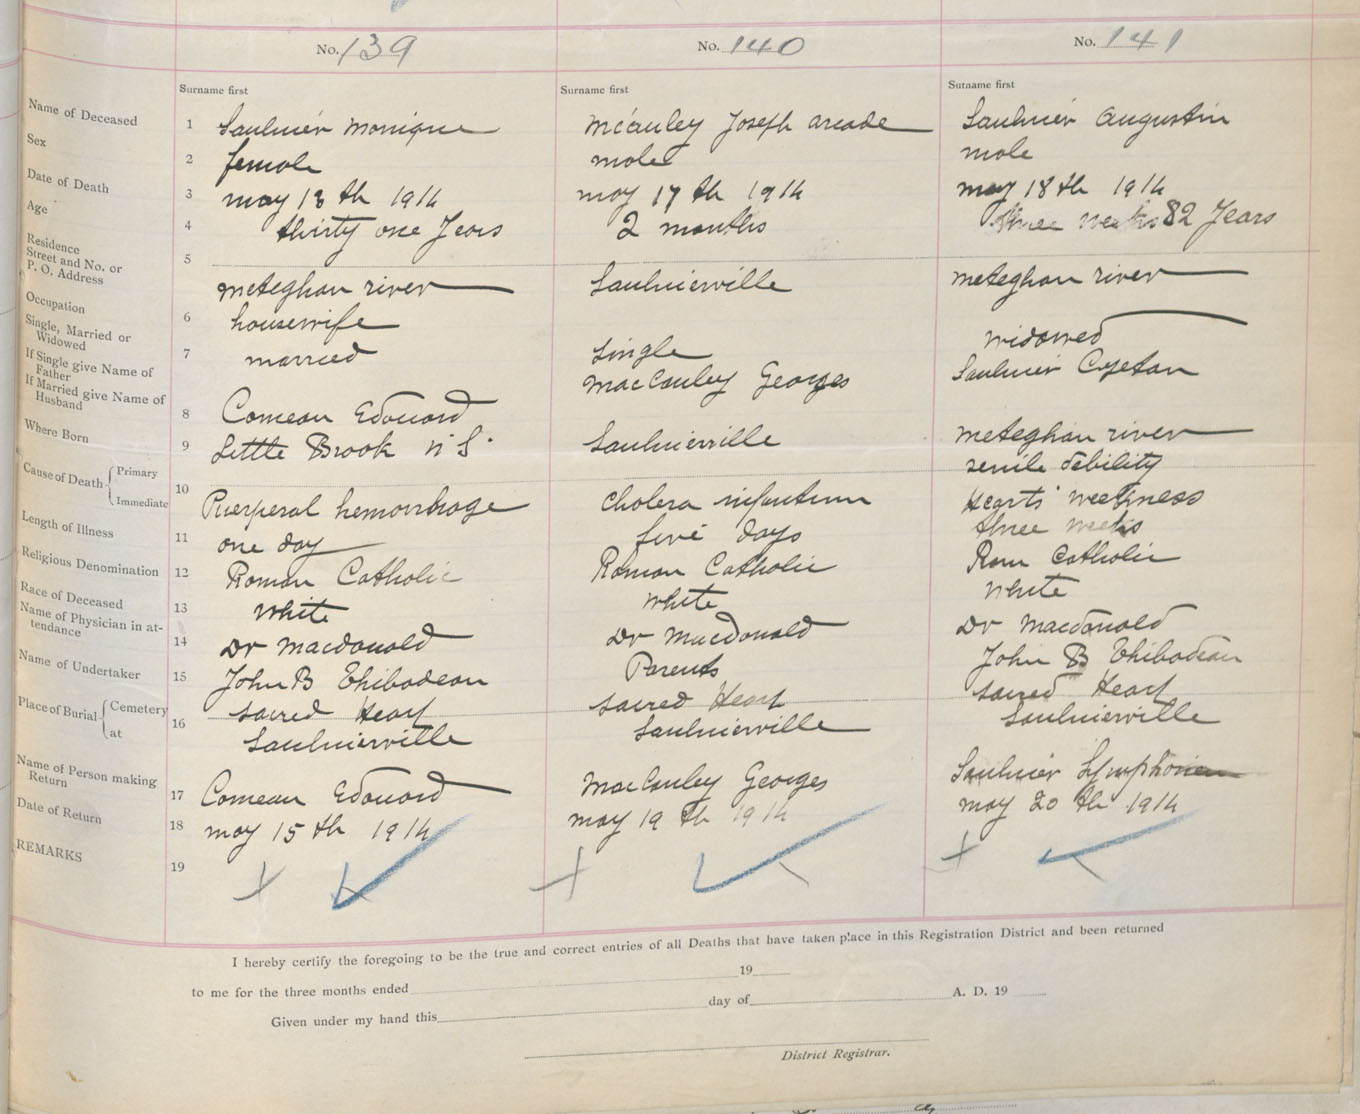 No. 139
No. 140
No. 141
Surname first
Surname first
Surname first
Name of Deceased 1 Saulnier Monique
McCauley Joseph Arcade
Saulnier Augustin
Sex 2 female
male
male
Date of Death 3 may 13 th 1914
may 17 th 1914
may 18 th 1914
Age 4 thirty one Years
2 months
three weeks 82 Years
Residence
Street and No. or
P. O. Address 5
meteghan river
Saulnierville
meteghan river
Occupation 6 housewife
Single, Married or
Widowed 7 married
single
widowed
If Single give Name of
Father
MacCauley Georges
Saulnier
If Married give Name of
Husband 8 Comeau Edouard
Where Born 9 Little Brook N S.
Saulnierville
meteghan river
Cause of Death Primary
senile debility
Immediate 10 Puerperal hemorrhage
Cholera infantum
Hearts weekness
Length of Illness 11 one day
five days
three weeks
Religious Denomination 12 Roman Catholic
Roman Catholic
Rom Catholic
Race of Deceased 13 White
White
White
Name of Physician in at-
tendance 14 Dr Macdonald
Dr Macdonald
Dr Macdonald
Name of Undertaker 15 John B Thibodeau
Parents
John B Thibodeau
Place of Burial Cemetery 16 Sacred Heart
Sacred Heart
Sacred Heart
at Saulnierville
Saulnierville
Saulnierville
Name of Person making
Return 17 Comeau Edouard
MacCauley Georges
Saulnier
Date of Return 18 may 15 th 1914
may 19 th 1914
may 20 th 1914
REMARKS 19
I hereby certify the foregoing to be the true and correct entries of all Deaths that have taken place in this Registration District and been returned
to me for the three months ended 19
Given under my hand this day of A. D. 19
District Registrar.